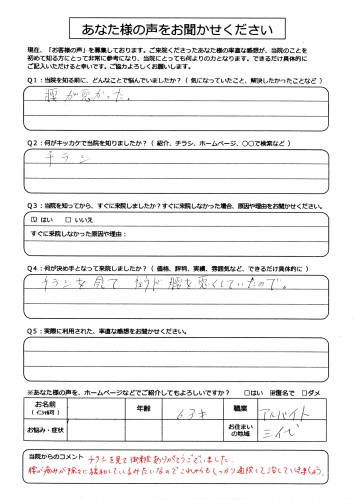 あなた様の声をお聞かせください
現在、「お客様の声」を募集しております。ご来院くださったあなた様の率直な感想が、当院のことを
初めて知る方にとって非常に参考になり、当院にとっても何よりの力となります。できるだけ具体的に
ご記入いただけると幸いです。ご協力よろしくお願いします。
Q1：当院を知る前に、どんなことで悩んでいましたか？（ 気になっていたこと、解決したかったことなど ）
腰が悪かった。
Q2：何がキッカケで当院を知りましたか？（ 紹介、チラシ、ホームページ、○○で検索など ）
チラシ
Q3：当院を知ってから、すぐに来院しましたか？すぐに来院しなかった場合、原因や理由をお聞かせください。
☑ はい □ いいえ
すぐに来院しなかった原因や理由：
Q4：何が決め手となって来院しましたか？（ 価格、評判、実績、雰囲気など、できるだけ具体的に ）
チラシを見て、ちょうど腰を悪くしていたので。
Q5：実際に利用された、率直な感想をお聞かせください。
※あなた様の声を、ホームページなどでご紹介してもよろしいですか？ □はい ☑匿名で □ダメ
お名前
（ｲﾆｼｬﾙ可）
年齢
63才
職業
アルバイト
お悩み・症状
お住まい
の地域
当院からのコメント
チラシを見て御来院ありがとうございました。
腰の痛みが徐々に緩和しているみたいなのでこれからもしっかり通院して治していきましょう。